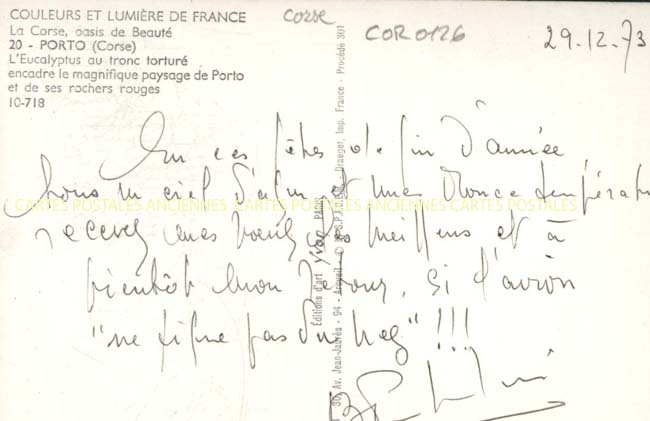 COULEURS ET LUMIÈRE DE FRANCE
La Corse, oasis de Beauté
20 - PORTO (Corse)
L'Eucalyptus au tronc torturé
encadre le magnifique paysage de Porto
et de ses rochers rouges
10-718
Corse
COR0126
29.12.73
En ces fêtes de fin d'année
sous un ciel d'azur et une douce températ
recevez mes voeux les meilleurs et à
bientôt mon retour, si l'avion
"ne pique pas du nez" !!!
CARTES POSTALES ANCIENNES CARTES POSTALES ANCIENNES CARTES POSTALES
Éditions d'art yvon PARIS
30, Av. Jean-Jaurès - 94 - Arcueil - Draeger, Imp. France - Procédé 301